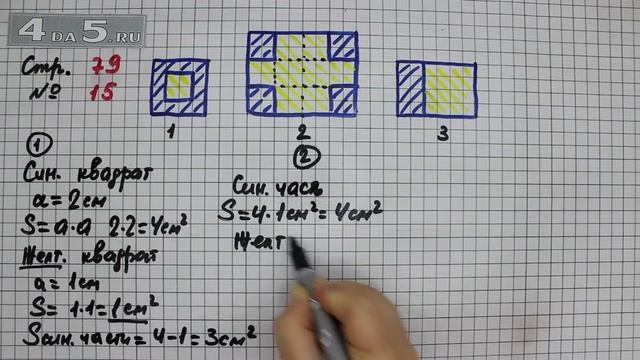 4DA5.RU
Стр. 79
№ 15
1
2
3
1
Син. квадрат
a = 2 см
S = a·a 2·2 = 4 см²
Желт. квадрат
a = 1 см
S = 1·1 = 1 см²
S син. части = 4 - 1 = 3 см²
2
Син. часть
S = 4·1 см² = 4 см²
Желт